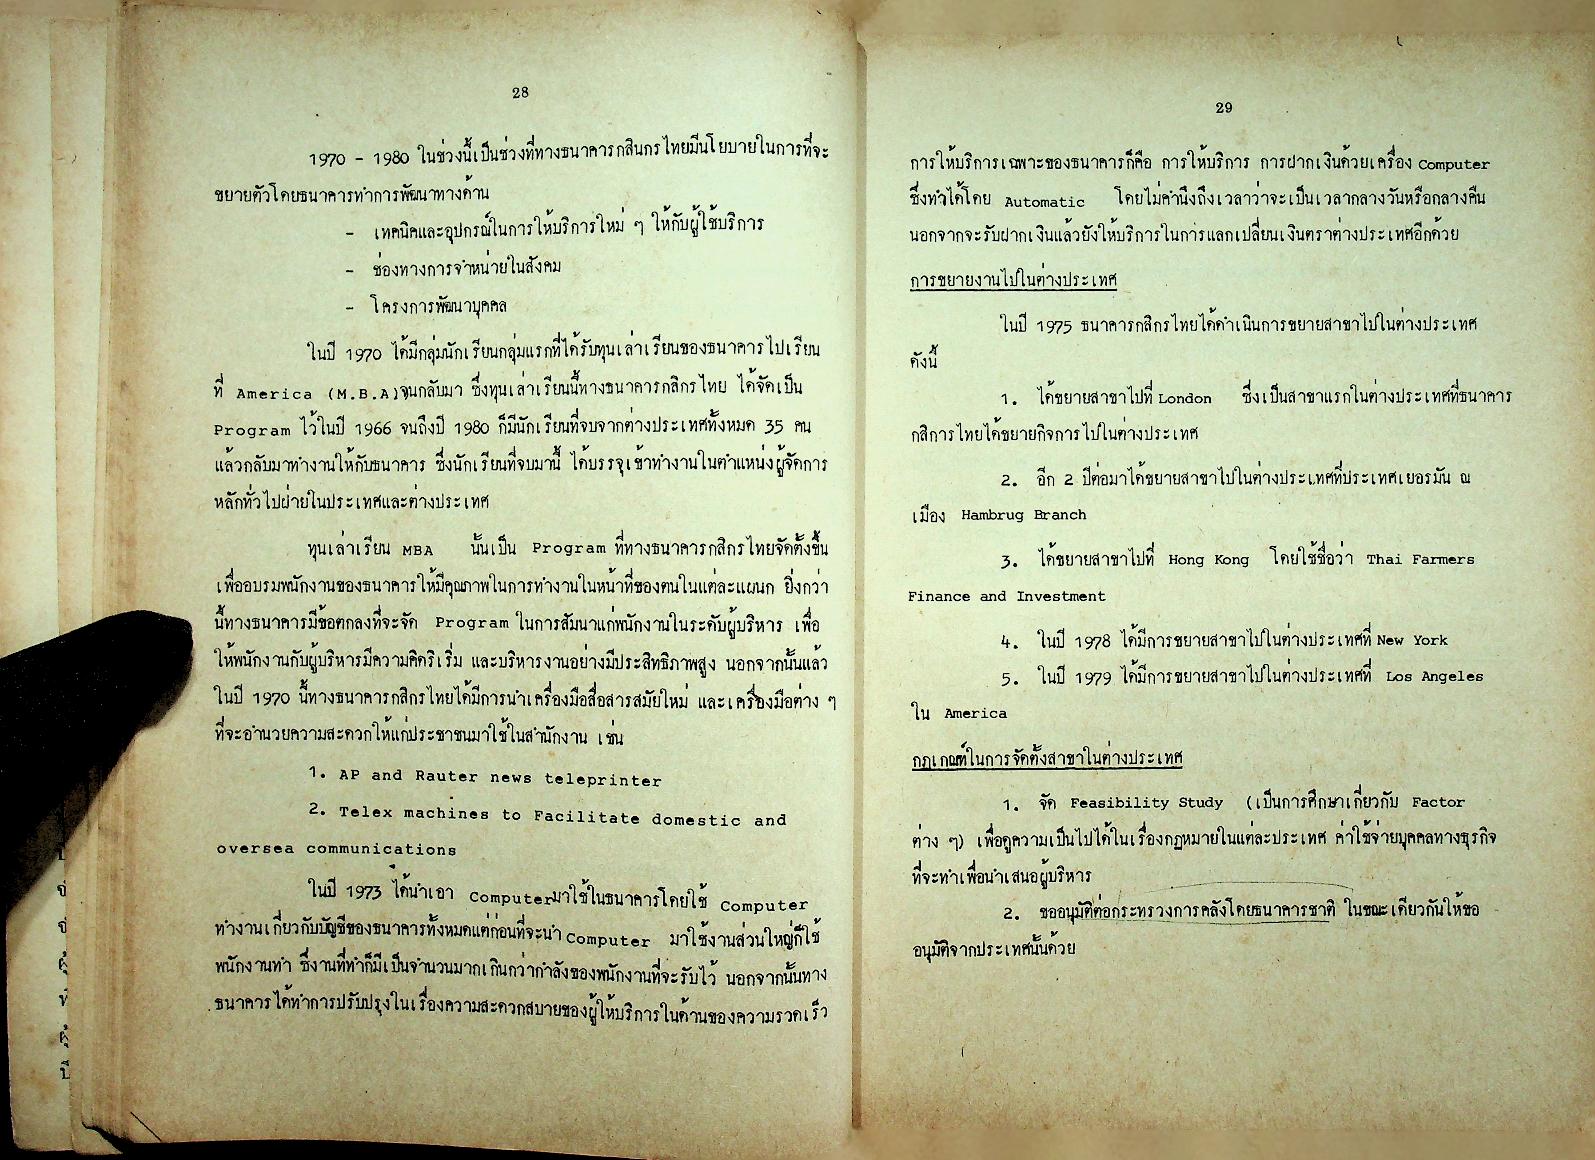 28
1970 - 1980 ในช่วงนี้เป็นช่วงที่ทางธนาคารกสินกรไทยมีนโยบายในการที่จะ
ขยายตัวโดยธนาคารทำการพัฒนาทางด้าน
- เทคนิคและอุปกรณ์ในการให้บริการใหม่ ๆ ให้กับผู้ใช้บริการ
- ช่องทางการจำหน่ายในสังคม
- โครงการพัฒนาบุคคล
ในปี 1970 ได้มีกลุ่มนักเรียนกลุ่มแรกที่ได้รับทุนเล่าเรียนของธนาคารไปเรียน
ที่ America (M.B.A)จนกลับมา ซึ่งทุนเล่าเรียนนี้ทางธนาคารกสิกรไทย ได้จัดเป็น
Program ไว้ในปี 1966 จนถึงปี 1980 ก็มีนักเรียนที่จบจากต่างประเทศทั้งหมด 35 คน
แล้วกลับมาทำงานให้กับธนาคาร ซึ่งนักเรียนที่จบมานี้ ได้บรรจุเข้าทำงานในตำแหน่งผู้จัดการ
หลักทั่วไปฝ่ายในประเทศและต่างประเทศ
ทุนเล่าเรียน MBA นั้นเป็น Program ที่ทางธนาคารกสิกรไทยจัดตั้งขึ้น
เพื่ออบรมพนักงานของธนาคารให้มีคุณภาพในการทำงานในหน้าที่ของตนในแต่ละแผนก ยิ่งกว่า
นี้ทางธนาคารมีข้อตกลงที่จะจัด Program ในการสัมนาแก่พนักงานในระดับผู้บริหาร เพื่อ
ให้พนักงานกับผู้บริหารมีความคิดริเริ่ม และบริหารงานอย่างมีประสิทธิภาพสูง นอกจากนั้นแล้ว
ในปี 1970 นี้ทางธนาคารกสิกรไทยได้มีการนำเครื่องมือสื่อสารสมัยใหม่ และเครื่องมือต่าง ๆ
ที่จะอำนวยความสะดวกให้แก่ประชาชนมาใช้ในสำนักงาน เช่น
1. AP and Rauter news teleprinter
2. Telex machines to Facilitate domestic and
oversea communications
ในปี 1973 ได้นำเอา Computerมาใช้ในธนาคารโดยใช้ Computer
ทำงานเกี่ยวกับบัญชีของธนาคารทั้งหมดแต่ก่อนที่จะนำ Computer มาใช้งานส่วนใหญ่ก็ใช้
พนักงานทำ ซึ่งานที่ทำก็มีเป็นจำนวนมากเกินกว่ากำลังของพนักงานที่จะรับไว้ นอกจากนั้นทาง
ธนาคารได้ทำการปรับปรุงในเรื่องความสะดวกสบายของผู้ให้บริการในด้านของความรวดเร็ว
29
การให้บริการเฉพาะของธนาคารก็คือ การให้บริการ การฝากเงินด้วยเครื่อง Computer
ซึ่งทำได้โดย Automatic โดยไม่คำนึงถึงเวลาว่าจะเป็นเวลากลางวันหรือกลางคืน
นอกจากจะรับฝากเงินแล้วยังให้บริการในการแลกเปลี่ยนเงินตราต่างประเทศอีกด้วย
การขยายงานไปในต่างประเทศ
ในปี 1975 ธนาคารกสิกรไทยได้ดำเนินการขยายสาขาไปในต่างประเทศ
ดังนี้
1. ได้ขยายสาขาไปที่ London ซึ่งเป็นสาขาแรกในต่างประเทศที่ธนาคาร
กสิการไทยได้ขยายกิจการไปในต่างประเทศ
2. อีก 2 ปีต่อมาได้ขยายสาขาไปในต่างประเทศที่ประเทศเยอรมัน ณ
เมือง Hambrug Branch
3. ได้ขยายสาขาไปที่ Hong Kong โดยใช้ชื่อว่า Thai Farmers
Finance and Investment
4. ในปี 1978 ได้มีการขยายสาขาไปในต่างประเทศที่ New York
5. ในปี 1979 ได้มีการขยายสาขาไปในต่างประเทศที่ Los Angeles
ใน America
กฎเกณฑ์ในการจัดตั้งสาขาในต่างประเทศ
1. จัด Feasibility Study (เป็นการศึกษาเกี่ยวกับ Factor
ต่าง ๆ) เพื่อดูความเป็นไปได้ในเรื่องกฎหมายในแต่ละประเทศ ค่าใช้จ่ายบุคคลทางธุรกิจ
ที่จะทำเพื่อนำเสนอผู้บริหาร
2. ขออนุมัติต่อกระทรวงการคลังโดยธนาคารชาติ ในขณะเดียวกันให้ขอ
อนุมัติจากประเทศนั้นด้วย